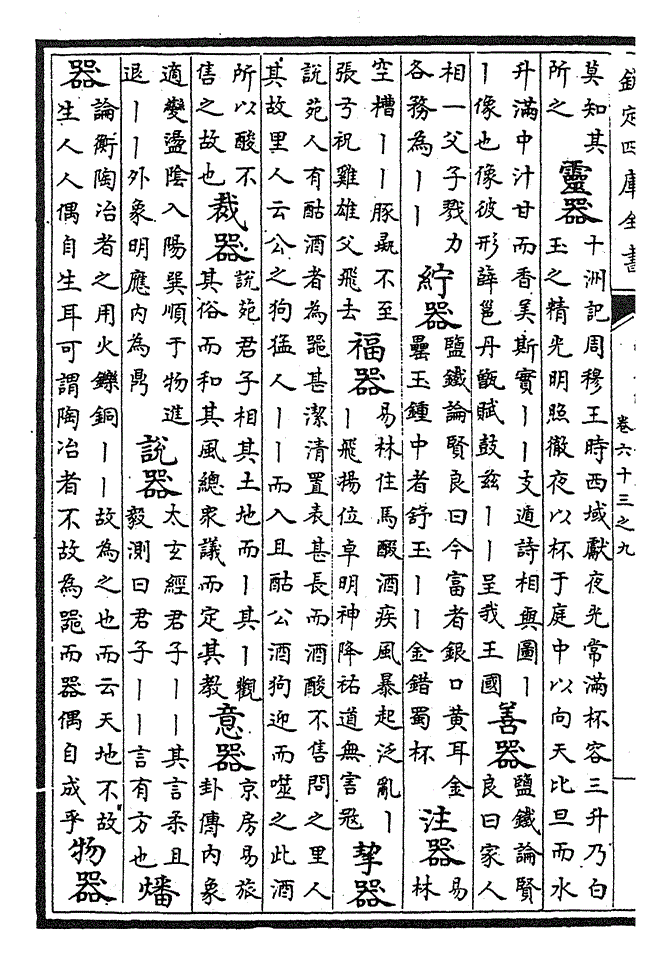 欽定四庫全書
卷六十三之九
莫知其
所之
靈器
十洲記周穆王時西域獻夜光常滿杯容三升乃白
玉之精光明照徹夜以杯于庭中以向天比旦而水
升滿中汁甘而香美斯實丨丨支遁詩相與圖丨
丨像也像彼形薛邕丹甑賦鼓兹丨丨呈我王國
善器
鹽鐵論賢
良曰家人
相一父子戮力
各務為丨丨
紵器
鹽鐵論賢良曰今富者銀口黄耳金
罍玉鍾中者舒玉丨丨金錯蜀杯
注器
易
林
空糟丨丨豚彘不至
張弓祝雞雄父飛去
福器
易林住馬醊酒疾風暴起泛亂丨
丨飛揚位卓明神降祐道無害寇
摯器
說苑人有酤酒者為噐甚潔清置表甚長而酒酸不售問之里人
其故里人云公之狗猛人丨丨而入且酤公酒狗迎而噬之此酒
所以酸不
售之故也
裁器
說苑君子相其土地而丨其丨觀
其俗而和其風總衆議而定其教
意器
京房易旅
卦傳内象
適變盪陰入陽巽順于物進
退丨丨外象明應内為鼎
說器
太玄經君子丨丨其言柔且
毅測曰君子丨丨言有方也
燔
器
論衡陶冶者之用火鑠銅丨丨故為之也而云天地不故
生人人偶自生耳可謂陶冶者不故為噐而器偶自成乎
物器